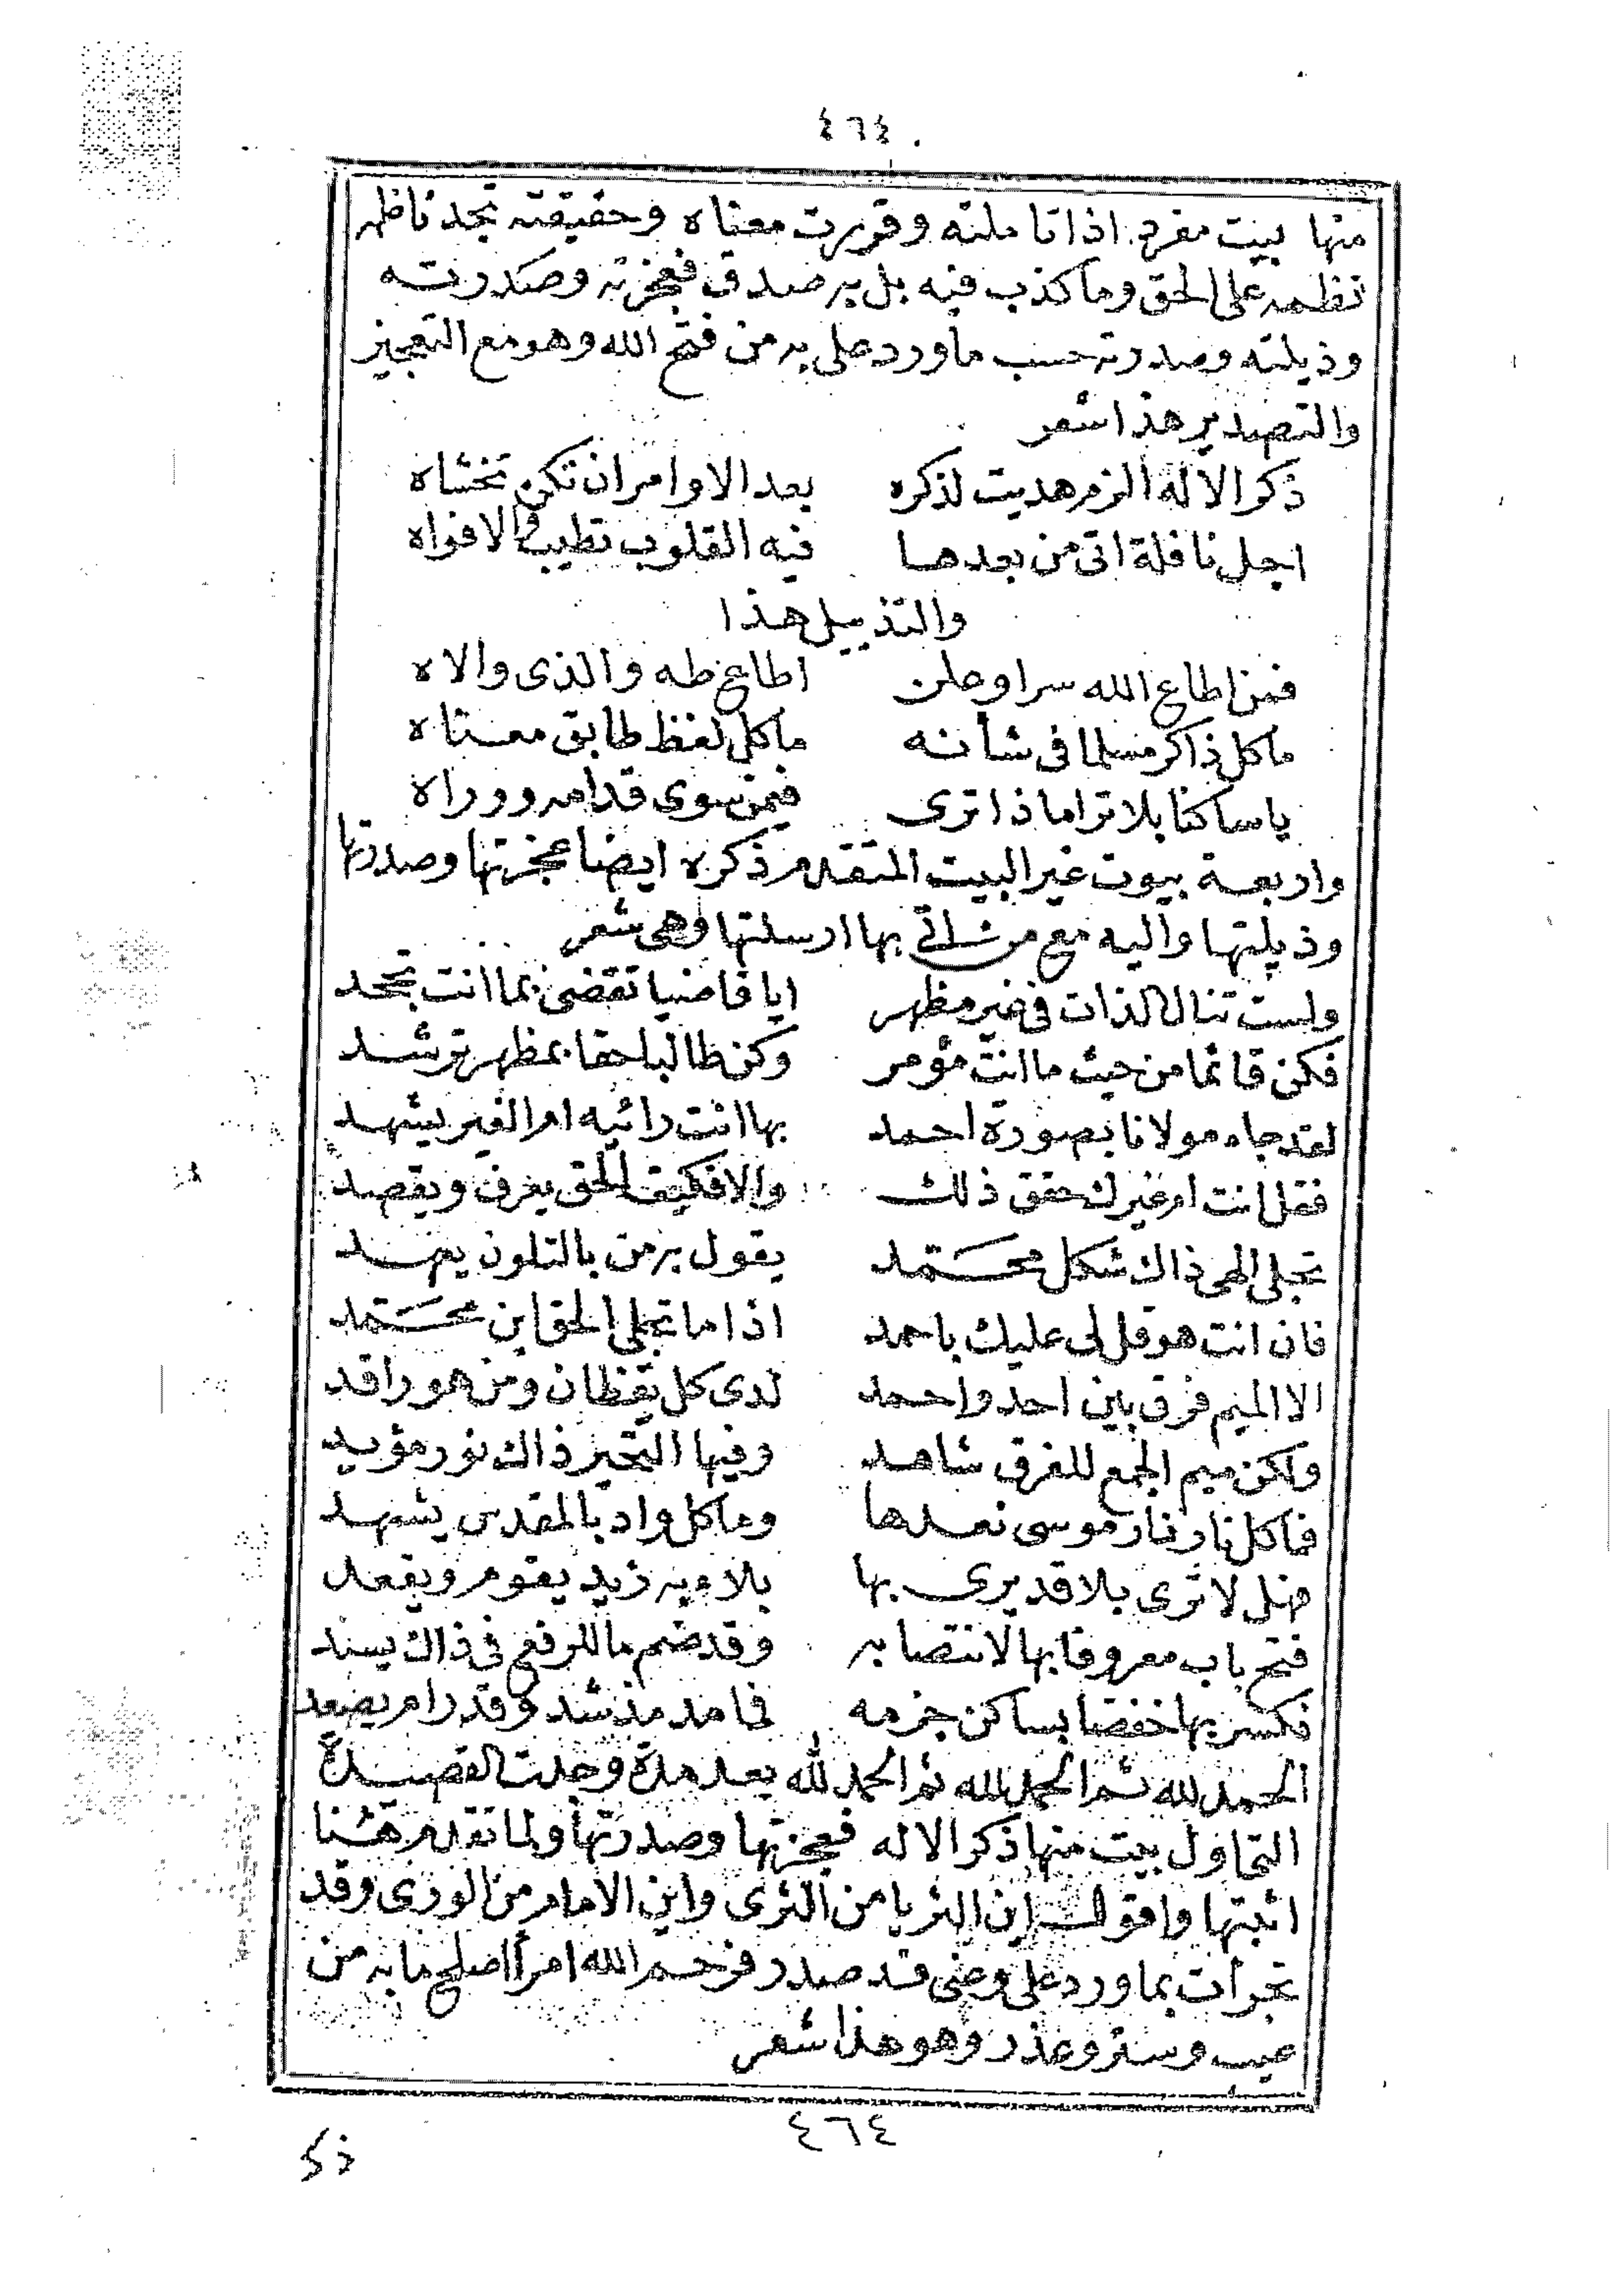 ٤٦٤
منها بيت مفرد اذا تاملته وقررت معناه وحقيقته تجد ناظمه
نظمه على الحق وما كذب فيه بل به صدق فعجزته وصدرته
وذيلته وصدرته حسب ما ورد على به من فتح الله وهو مع التعجيز
والتصدير هذا شعر
ذكر الاله الزم هديت لذكره بعد الاوامر ان تكن تخشاه
اجل نافلة اتى من بعدها فيه القلوب تطيب والافواه
والتذييل هذا
فمن اطاع الله سرا وعلن اطاع طه والذى والاه
ما كل ذاكر مسلما فى شأنه ما كل لفظ طابق معناه
ياساكنا بلاترا ماذا ترى فيمن سوى قدامه ووراه
واربعة بيوت غير البيت المتقدم ذكره ايضا عجزتها وصدرتها
وذيلتها واليه مع من بها ارسلتها وهى شعر
ولست تنال الذات فى غير مظهر ايا قاضيا تقضى بما انت تجحد
فكن قائما من حيث ما انت مؤمر وكن طالبا حقا بمظهر ترشد
لقد جاء مولانا بصورة احمد بها انت رائيه ام الغير يشهد
فقل انت ام غيرك حقق ذلك والا فكيف الحق يعرف ويقصد
تجلى الهى ذاك شكل محمد يقول به من بالتلون يعهد
فان انت هو قل لى عليك ياحمد اذا ما تجلى الحق اين محمد
الا الميم فرق بين احد واحمد لدى كل يقظان ومن هو راقد
ولكن ميم الجمع للفرق شاهد وفيها التحير ذاك نور مؤيد
فما كل نار نار موسى نعدها وما كل واد بالمقدس يشهد
فهل لا ترى بلا قد يرى بها بلاميه زيد يقوم ويقعد
فتح باب معروفا بها لانتصابه وقد ضم ما للرفع فى ذاك يسند
فكسر بها خفضا بساكن جزمه فما مد مذ شد وقد رام يصعد
الحمد لله ثم الحمد لله ثم الحمد لله بعد مدة وجدت القصيدة
التى اول بيت منها ذكر الاله فعجزتها وصدرتها ولما تقدم هنا
اثبتها واقول اين الثريا من الثرى واين الامام من الورى وقد
تجرأت بما ورد على وعنى قد صدر فرحم الله امرأ اصلح ما به من
عيب وستر وعذر وهو هذا شعر
٤٦٤